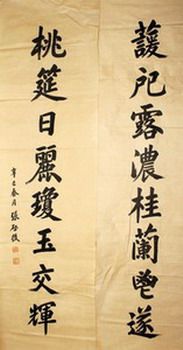 蘐戺露濃桂蘭鬯遂
桃筵日麗瓊玉交輝
辛巳春月 張啟後